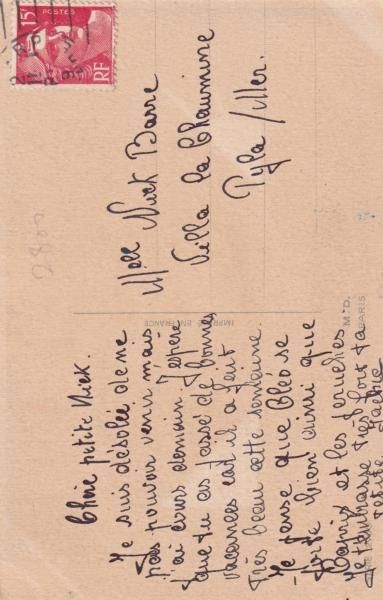 Chère petite Nick.
Je suis désolée de ne
pas pouvoir venir mais
j'ai cours demain. J'espère
que tu as assez de bonnes
vacances car il a fait
très beau cette semaine.
Je pense que Cléo se
porte bien ainsi que
Capris et les perruches
Je t'embrasse très fort ta
petite
Mell Nick Barre
Villa la Chaumine
Pyla s/Mer.
IMPRIMÉ EN FRANCE
M.D.
PARIS
15F
POSTES
RF
2800